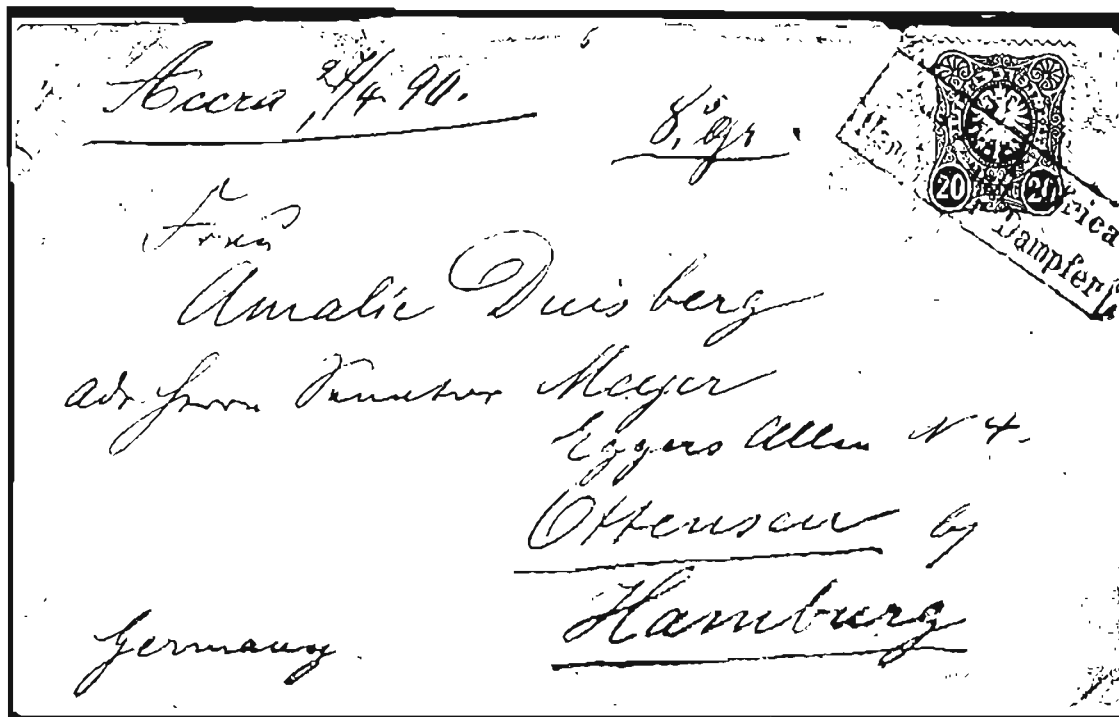 Accra, 24/4 90.
8,5 gr.
20 20
rica
Dampfer
Frau
Amalie Duisberg
adr. Herrn Senator Meyer
Eggers Allee N 4.
Ottensen by
Hamburg
Germany.